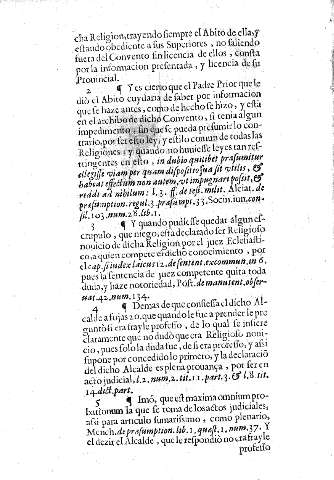 cha Religion, trayendo siempre el Abito de ella, y
estando obediente a sus Superiores, no saliendo
fuera del Convento sin licencia de ellos, consta
por la informacion presentada, y licencia de su
Provincial.
2 ¶ Y es cierto que el Padre Prior que le
dió el Abito cuydaria de saber por informacion
que se haze antes, como de hecho se hizo, y està
en el archibo de dicho Convento, si tenia algun
impedimento, sin que se pueda presumir lo con-
trario, por ser esto ley, y estilo comun de todas las
Religiones; y quando no huviesse ley es tan res-
tringentes en esto, in dubio quilibet præsumitur
elegisse viam per quam dispositio sua sit utilis, &
habeat effectum non autem, ut impugnari possit, &
reddi ad nihilum: l. 3. ff. de test. milit. Alciat. de
præsumption. regul. 3. præsumpt. 33. Socin. iun. con-
sil. 103. num. 28. lib. 1.
3 ¶ Y quando pudiesse quedar algun es-
crupulo, que niego, està declarado ser Religioso
novicio de dicha Religion por el juez Eclesiasti-
co, a quien compete èl dicho conocimiento, por
el cap. si index laicus 12. de sentent. excommun. in 6,
pues la sentencia de juez competente quita toda
duda, y haze notoriedad, Post. de manutent. obser-
uat. 42. num. 134.
4 ¶ Demas de que confiessa el dicho Al-
calde a fojas 20. que quando le fue a prender le pre
guntò si era frayle professo, de lo qual se infiere
claramente que no dudò que era Religioso novi-
cio, pues solo la duda fue, de si era professo, y assi
supone por concedido lo primero, y la declaració
del dicho Alcalde es plena prouança, por ser en
acto judicial, l. 2. num. 2. tit. 11. part. 3. & l. 8. tit.
14. dict. part.
5 ¶ Imò, que est maxima omnium pro-
bationum la que se toma de los actos judiciales,
assi para articulo sumarissimo, como plenario,
Mench. de præsumption. lib. 1. quæst. 1. num. 37. Y
el dezir el Alcalde, que le respondiò no era frayle
professo